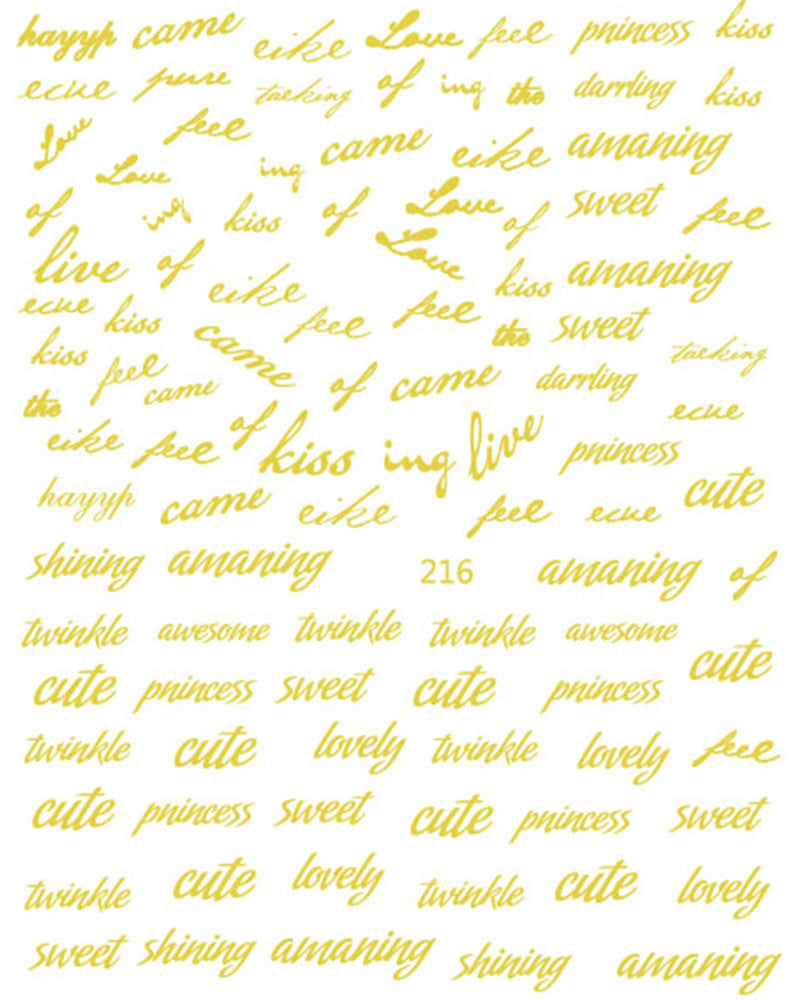 hayyp came eike Love feel pnincess kiss
ecue pure taeking of ing the darrling kiss
Love feel ing came eike amaning
Love
of ing kiss of Love of sweet feel
live of eike Love kiss amaning
ecue kiss feel feel the sweet
kiss feel came came of came darrling taeking
the ecue
eike feel of kiss ing live pnincess
hayyp came eike feel ecue cute
shining amaning 216 amaning of
twinkle awesome twinkle twinkle awesome
cute pnincess sweet cute pnincess cute
twinkle cute lovely twinkle lovely feel
cute pnincess sweet cute pnincess sweet
twinkle cute lovely twinkle cute lovely
sweet shining amaning shining amaning